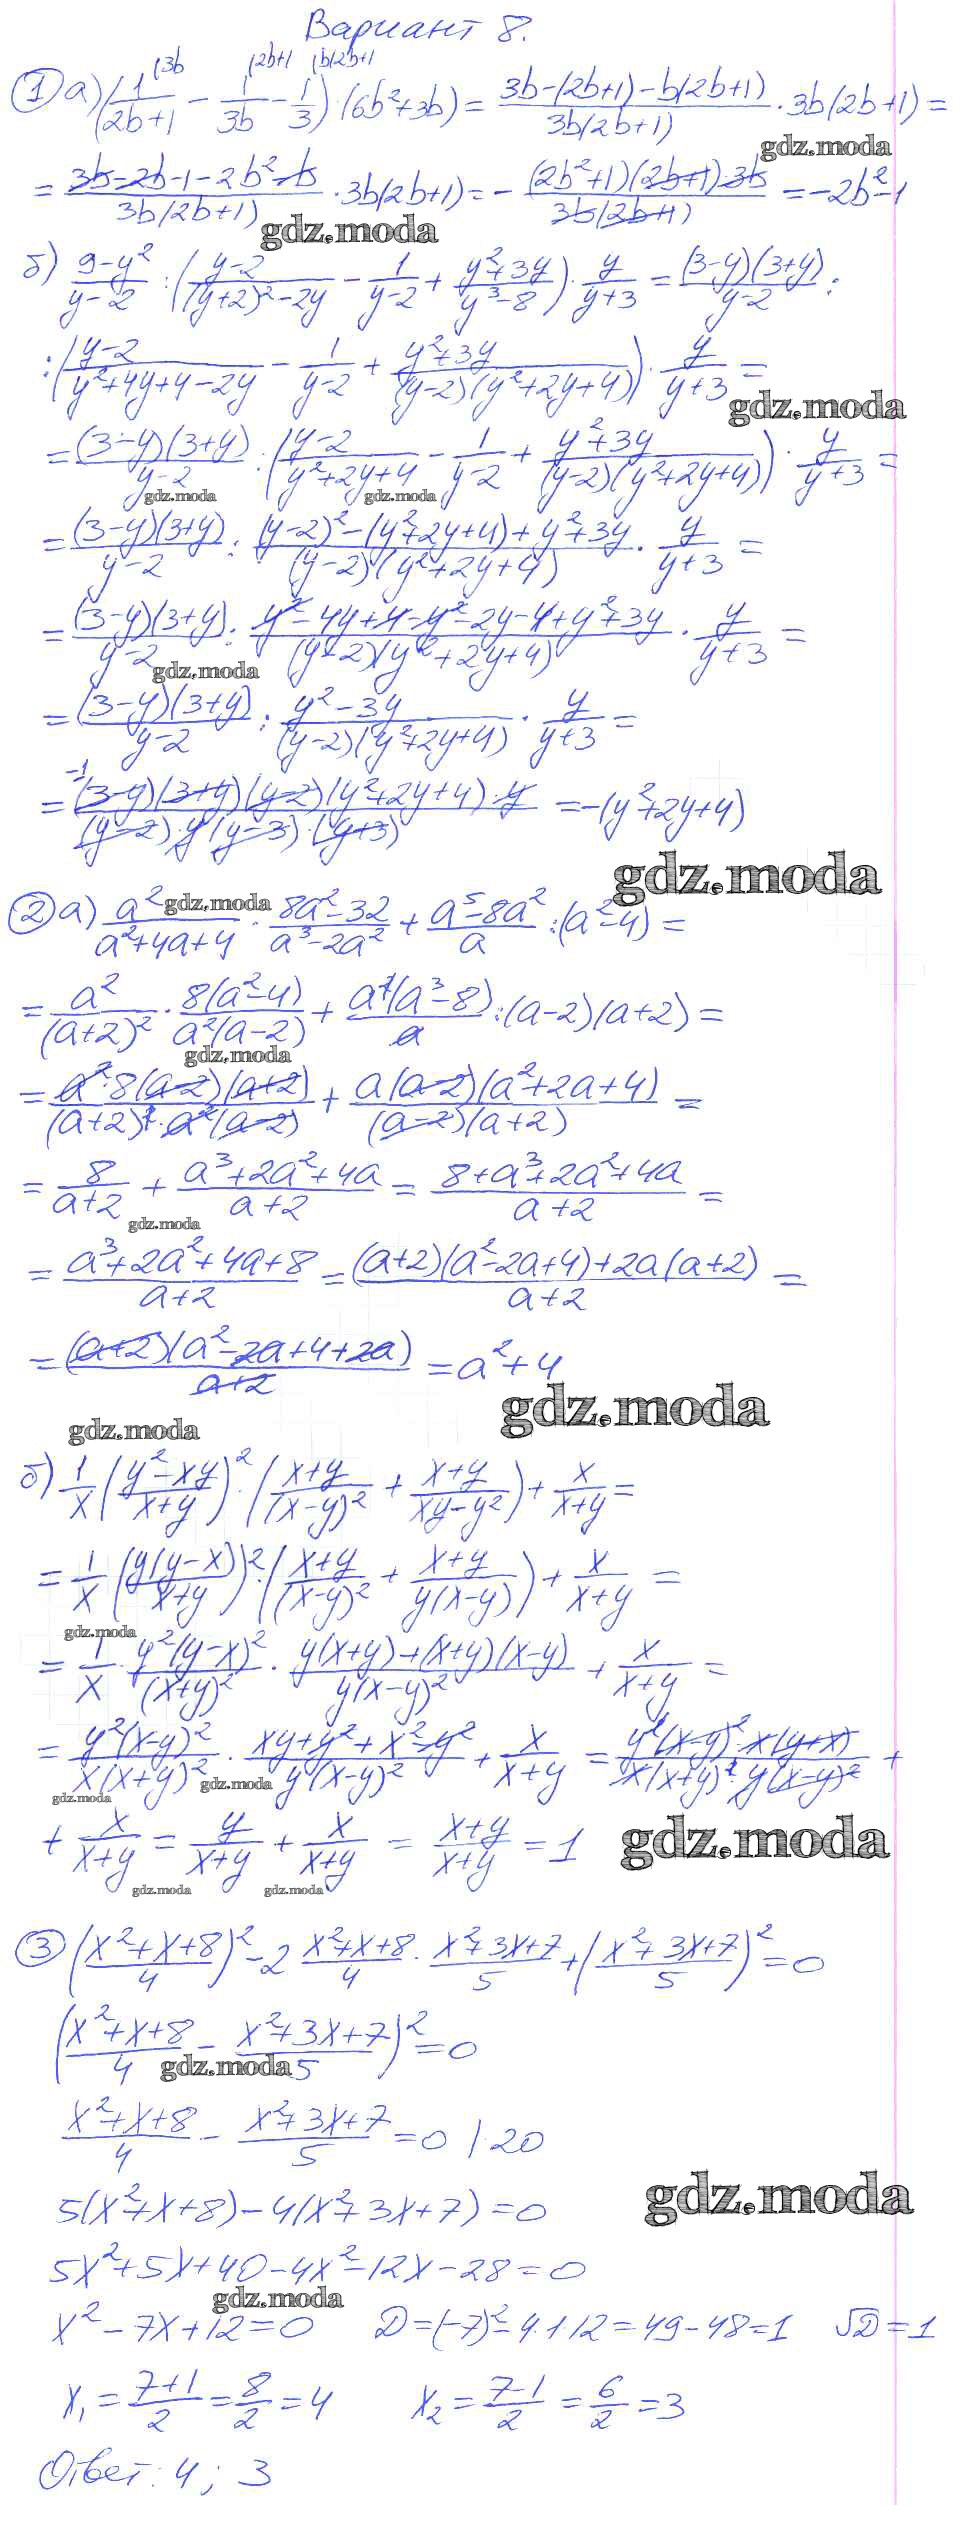 Вариант 8.
① а) (1/(2b+1) |3b - 1/(3b) |2b+1 - 1/3 |b(2b+1) ) · (6b²+3b) = (3b-(2b+1)-b(2b+1))/(3b(2b+1)) · 3b(2b+1) =
gdz.moda
= (3b-2b-1-2b²-b)/(3b(2b+1)) · 3b(2b+1) = - ((2b²+1)(2b+1)·3b)/(3b(2b+1)) = -2b²-1
gdz.moda
б) (9-y²)/(y-2) : ((y-2)/((y+2)²-2y) - 1/(y-2) + (y²+3y)/(y³-8)) · y/(y+3) = ((3-y)(3+y))/(y-2) :
: ((y-2)/(y²+4y+4-2y) - 1/(y-2) + (y²+3y)/((y-2)(y²+2y+4))) · y/(y+3) =
gdz.moda
= ((3-y)(3+y))/(y-2) : ((y-2)/(y²+2y+4) - 1/(y-2) + (y²+3y)/((y-2)(y²+2y+4))) · y/(y+3) =
gdz.moda gdz.moda
= ((3-y)(3+y))/(y-2) : ((y-2)²-(y²+2y+4)+y²+3y)/((y-2)(y²+2y+4)) · y/(y+3) =
= ((3-y)(3+y))/(y-2) : (y²-4y+4-y²-2y-4+y²+3y)/((y-2)(y²+2y+4)) · y/(y+3) =
gdz.moda
= ((3-y)(3+y))/(y-2) : (y²-3y)/((y-2)(y²+2y+4)) · y/(y+3) =
-1
= ((3-y)(3+y)(y-2)(y²+2y+4)·y)/((y-2)·y(y-3)·(y+3)) = -(y²+2y+4)
gdz.moda
② а) a²/(a²+4a+4) · (8a²-32)/(a³-2a²) + (a⁵-8a²)/a : (a²-4) =
gdz.moda
= a²/(a+2)² · (8(a²-4))/(a²(a-2)) + (a²(a³-8))/a : (a-2)(a+2) =
gdz.moda
= (a²·8(a-2)(a+2))/((a+2)²·a²(a-2)) + (a(a-2)(a²+2a+4))/((a-2)(a+2)) =
= 8/(a+2) + (a³+2a²+4a)/(a+2) = (8+a³+2a²+4a)/(a+2) =
gdz.moda
= (a³+2a²+4a+8)/(a+2) = ((a+2)(a²-2a+4)+2a(a+2))/(a+2) =
= ((a+2)(a²-2a+4+2a))/(a+2) = a²+4
gdz.moda
gdz.moda
б) 1/x ((y²-xy)/(x+y))² · ((x+y)/(x-y)² + (x+y)/(xy-y²)) + x/(x+y) =
= 1/x ((y(y-x))/(x+y))² · ((x+y)/(x-y)² + (x+y)/(y(x-y))) + x/(x+y) =
gdz.moda
= 1/x · (y²(y-x)²)/(x+y)² · (y(x+y)+(x+y)(x-y))/(y(x-y)²) + x/(x+y) =
= (y²(x-y)²)/(x(x+y)²) · (xy+y²+x²-y²)/(y(x-y)²) + x/(x+y) = (y²(x-y)²·x(y+x))/(x(x+y)²·y(x-y)²) +
gdz.moda gdz.moda
+ x/(x+y) = y/(x+y) + x/(x+y) = (x+y)/(x+y) = 1
gdz.moda
gdz.moda gdz.moda
③ ((x²+x+8)/4)² - 2 (x²+x+8)/4 · (x²+3x+7)/5 + ((x²+3x+7)/5)² = 0
((x²+x+8)/4 - (x²+3x+7)/5)² = 0
gdz.moda
(x²+x+8)/4 - (x²+3x+7)/5 = 0 |·20
gdz.moda
5(x²+x+8)-4(x²+3x+7)=0
5x²+5x+40-4x²-12x-28=0
gdz.moda
x²-7x+12=0 D=(-7)²-4·1·12=49-48=1 √D=1
x₁ = (7+1)/2 = 8/2 = 4 x₂ = (7-1)/2 = 6/2 = 3
Ответ: 4; 3